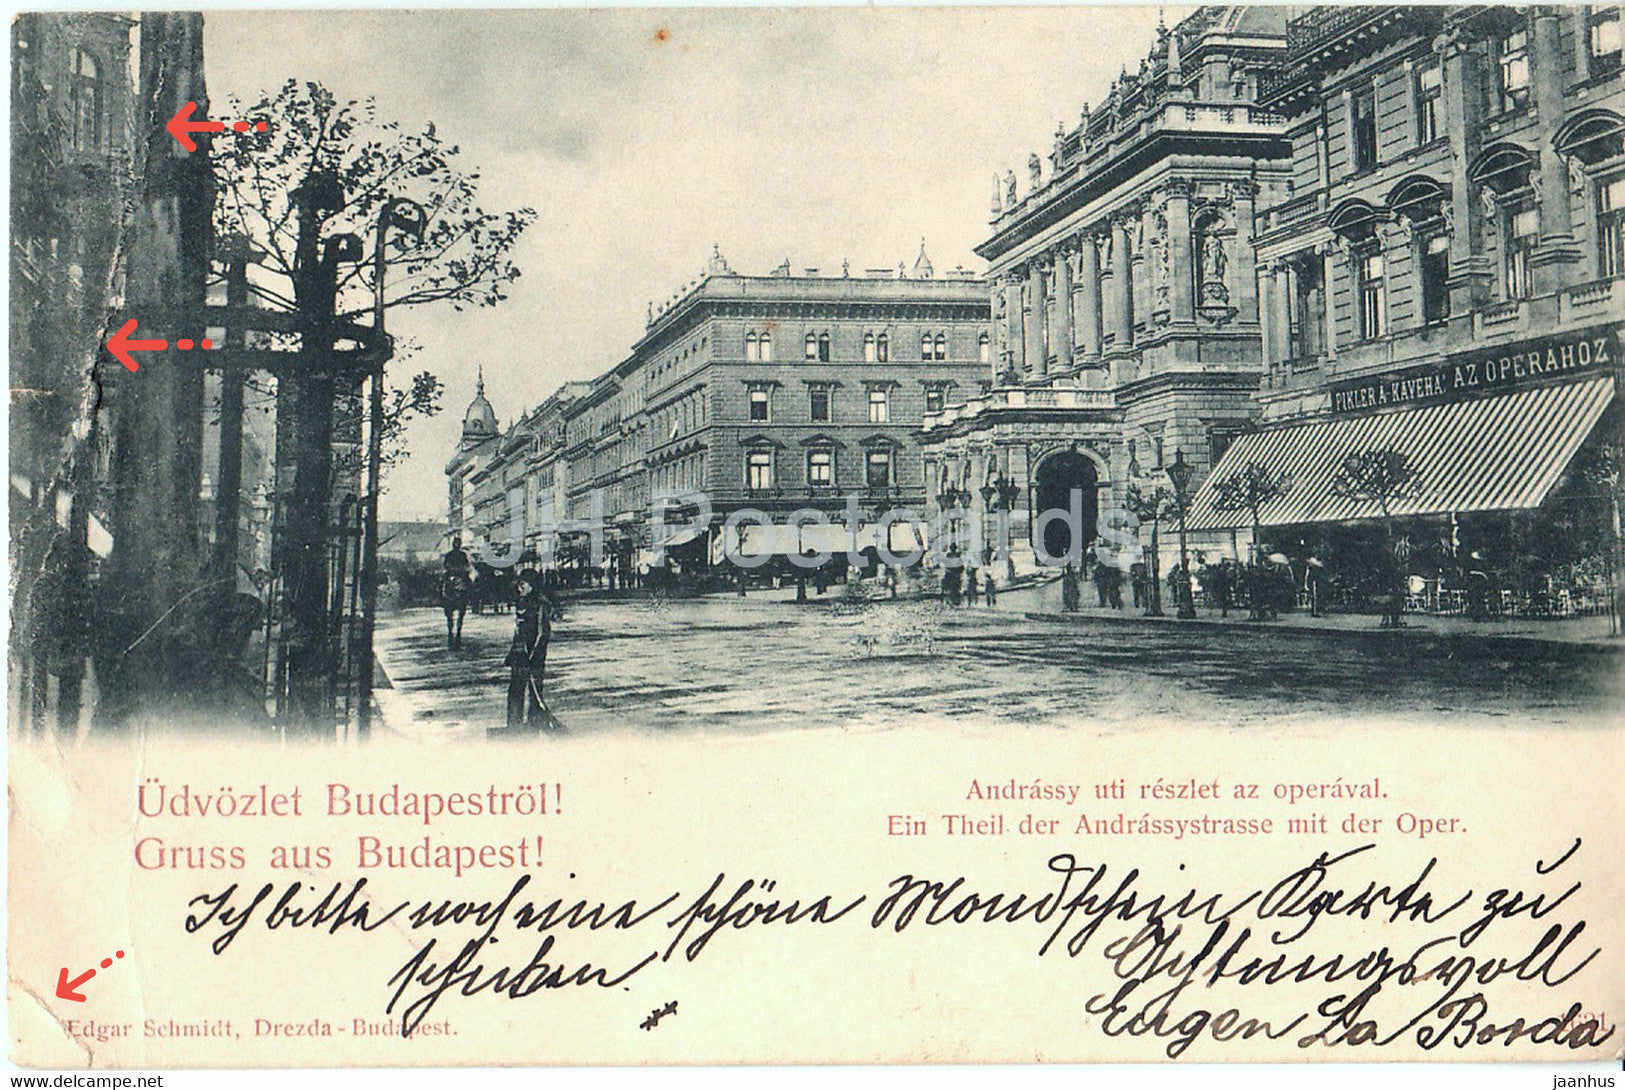 PIKLER A-KÁVEHÁZ AZ OPERÁHOZ
JH Postcards
Üdvözlet Budapeströl!
Gruss aus Budapest!
Andrássy uti részlet az operával.
Ein Theil der Andrássystrasse mit der Oper.
Ich bitte noch eine schöne Mondschein Karte zu
schicken.
Achtungsvoll
Eugen La Borda
Edgar Schmidt, Drezda-Budapest.
1621
(C) delcampe.net
jaanhus